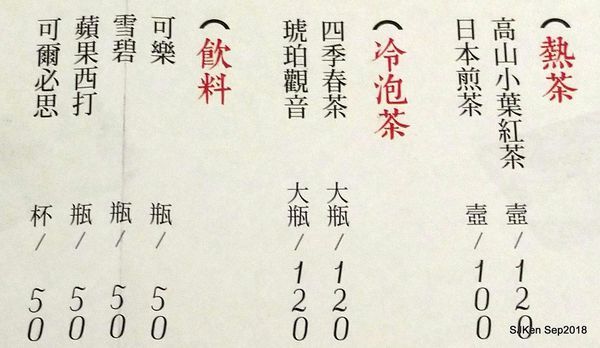 熱茶
高山小葉紅茶 壺/120
日本煎茶 壺/100
冷泡茶
四季春茶 大瓶/120
琥珀觀音 大瓶/120
飲料
可樂 瓶/50
雪碧 瓶/50
蘋果西打 瓶/50
可爾必思 杯/50
SJKen Sep2018